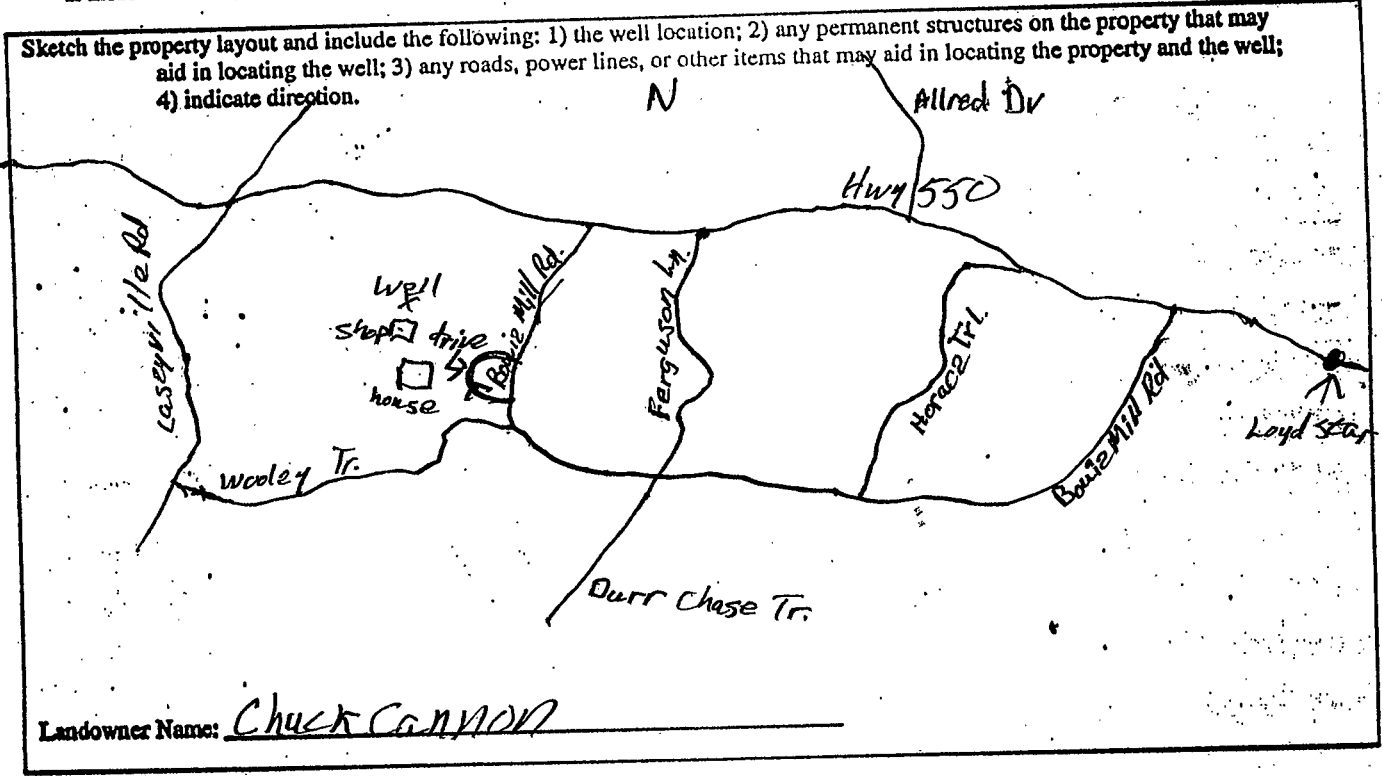 Sketch the property layout and include the following: 1) the well location; 2) any permanent structures on the property that may
aid in locating the well; 3) any roads, power lines, or other items that may aid in locating the property and the well;
4) indicate direction.
N
Allred Dr
Hwy 550
Laseyville Rd
Well
shop
drive
house
Bouie Mill Rd.
Ferguson Ln.
Horace Trl.
Bouie Mill Rd
Loyd Star
Wooley Tr.
Durr Chase Tr.
Landowner Name: Chuck Cannon